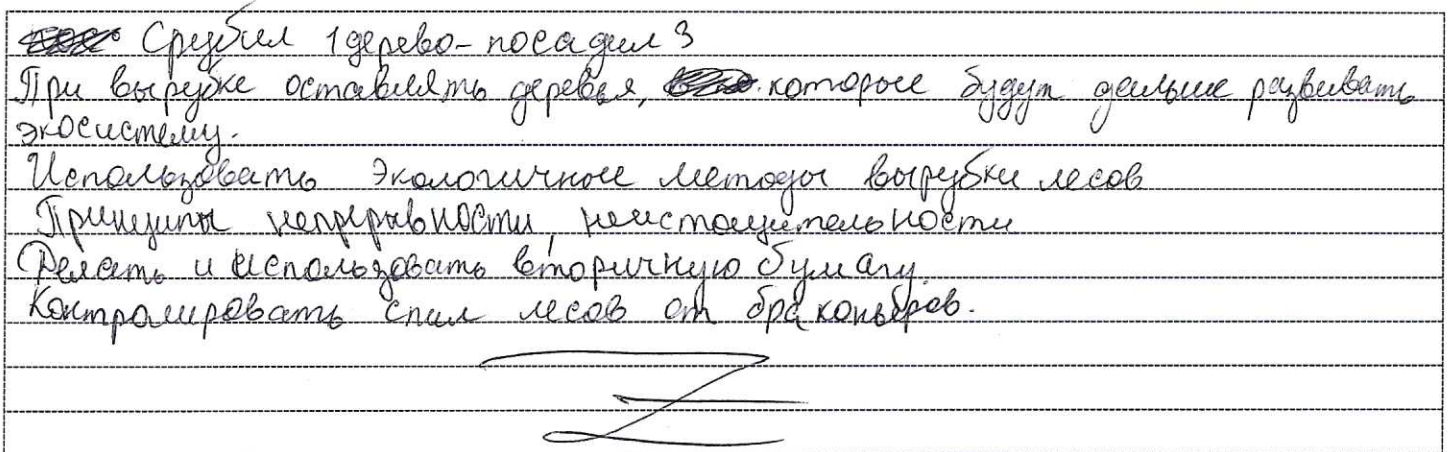 Срубил 1 дерево - посадил 3
При вырубке оставлять деревья, которые будут дальше развивать
экосистему.
Использовать экологичные методы вырубки лесов
Принципы непрерывности, неистощительности
Делать и использовать вторичную бумагу.
Контролировать спил лесов от браконьеров.
Z